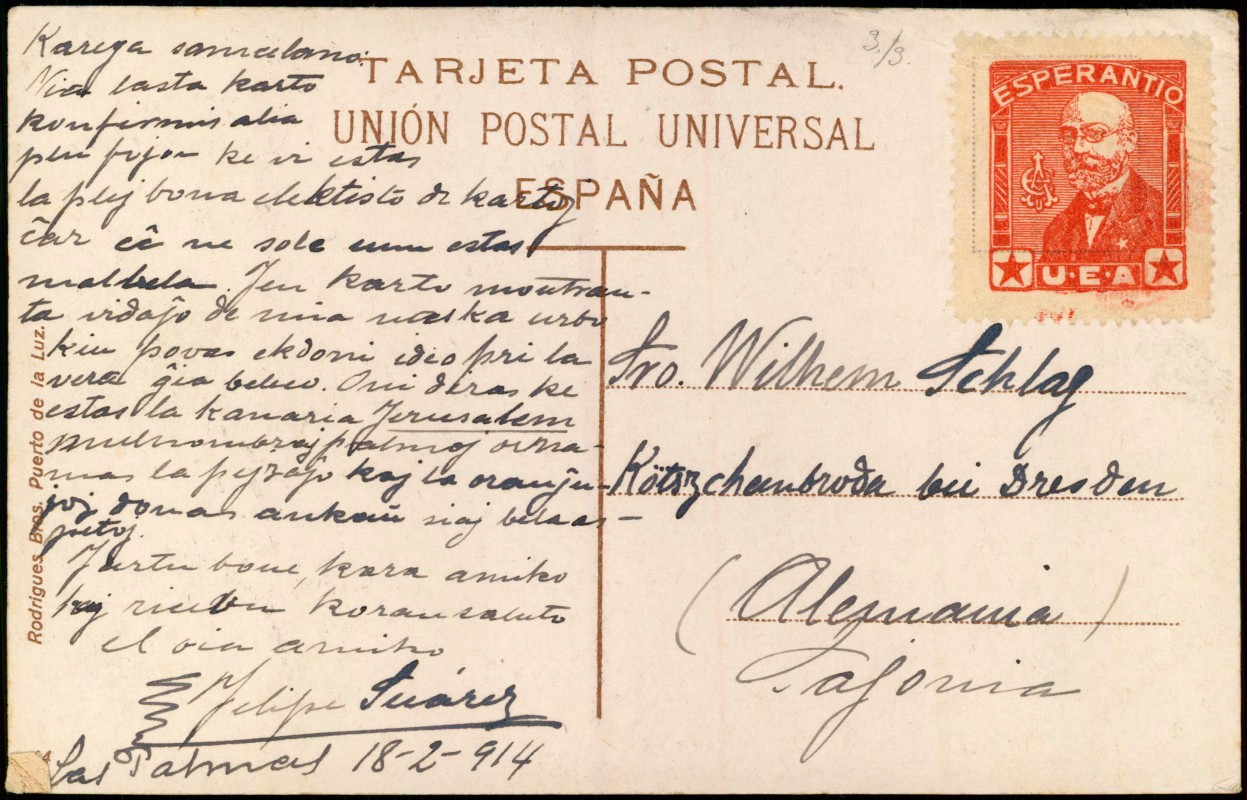 Karega samcelano:
Via lasta karto
konfirmis alia
plu fojon ke vi estas
la plej bona elektisto de kartoj
ĉar eĉ ne sole unu estas
malbela. Jen karto montran-
ta vidaĵo de mia naska urbo
kiu povas ekdoni ideo pri la
vera ĝia beleco. Oni diras ke
estas la kanaria Jerusalem
multnombraj palmoj orna-
mas la pejzaĵo kaj la oranĝu-
joj donas ankaŭ siaj bela as-
pektoj.
Fartu bone, kara amiko
kaj ricevu koran saluto
el via amiko
Felipe Suárez
Las Palmas 18-2-914
3./3.
TARJETA POSTAL.
UNIÓN POSTAL UNIVERSAL
ESPAÑA
ESPERANTIO
U·E·A
Sro. Wilhem Schlag
Kötszchenbroda bei Dresden
(Alemania)
Sajonia
Rodrigues Bros. Puerto de la Luz.